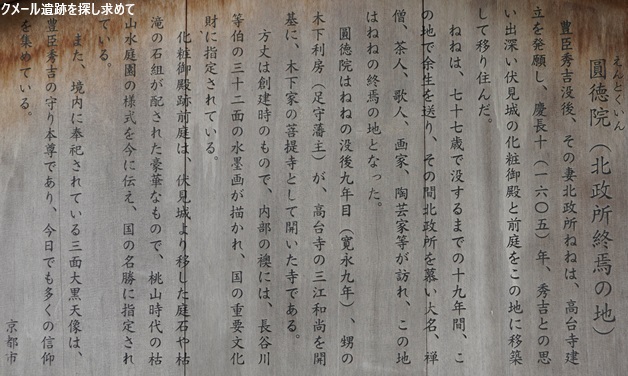 クメール遺跡を探し求めて
えんとくいん
圓徳院（北政所終焉の地）
豊臣秀吉没後、その妻北政所ねねは、高台寺建
立を発願し、慶長十（一六〇五）年、秀吉との思
い出深い伏見城の化粧御殿と前庭をこの地に移築
して移り住んだ。
ねねは、七十七歳で没するまでの十九年間、こ
の地で余生を送り、その間北政所を慕い大名、禅
僧、茶人、歌人、画家、陶芸家等が訪れ、この地
はねねの終焉の地となった。
圓徳院はねねの没後九年目（寛永九年）、甥の
木下利房（足守藩主）が、高台寺の三江和尚を開
墓に、木下家の菩提寺として開いた寺である。
方丈は創建時のもので、内部の襖には、長谷川
等伯の三十二面の水墨画が描かれ、国の重要文化
財に指定されている。
化粧御殿跡前庭は、伏見城より移した庭石や枯
滝の石組が配された豪華なもので、桃山時代の枯
山水庭園の様式を今に伝え、国の名勝に指定され
ている。
また、境内に奉祀されている三面大黒天像は、
豊臣秀吉の守り本尊であり、今日でも多くの信仰
を集めている。
京都市